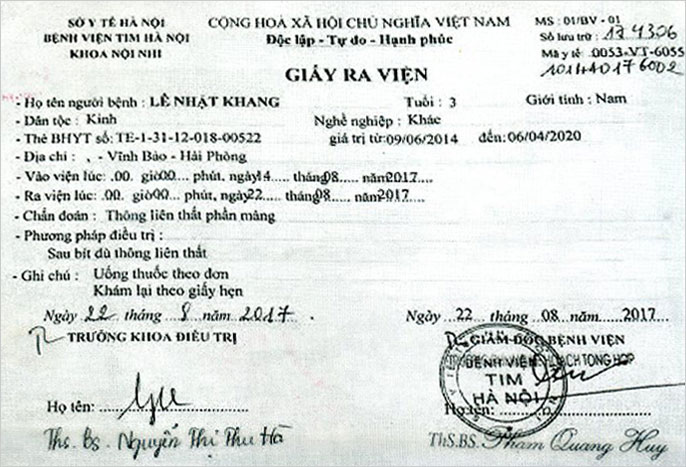 SỞ Y TẾ HÀ NỘI
BỆNH VIỆN TIM HÀ NỘI
KHOA NỘI NHI
CỘNG HOÀ XÃ HỘI CHỦ NGHĨA VIỆT NAM
Độc lập - Tự do - Hạnh phúc
MS : 01/BV - 01
Số lưu trữ : 174306
Mã y tế 0053-VT-6055
101440176002
GIẤY RA VIỆN
- Họ tên người bệnh : LÊ NHẬT KHANG Tuổi : 3 Giới tính : Nam
- Dân tộc : Kinh Nghề nghiệp : Khác
- Thẻ BHYT số: TE-1-31-12-018-00522 giá trị từ:09/06/2014 đến:06/04/2020
- Địa chỉ : , - Vĩnh Bảo - Hải Phòng
- Vào viện lúc: .00. giờ00... phút, ngày14.... tháng08... năm2017....
- Ra viện lúc: .00. giờ00... phút, ngày22.... tháng08... năm2017....
- Chẩn đoán : Thông liên thất phần màng
- Phương pháp điều trị :
Sau bít dù thông liên thất
- Ghi chú : Uống thuốc theo đơn
Khám lại theo giấy hẹn
Ngày 22 tháng 8 năm 2017.
Ngày 22 tháng 08 năm 2017
TL TRƯỞNG KHOA ĐIỀU TRỊ
TL GIÁM ĐỐC BỆNH VIỆN
HOẠCH TỔNG HỢP
BỆNH VIỆN
TIM
HÀ NỘI
Họ tên:
Họ tên:
Ths. Bs. Nguyễn Thị Thu Hà
ThS.BS. Phạm Quang Huy